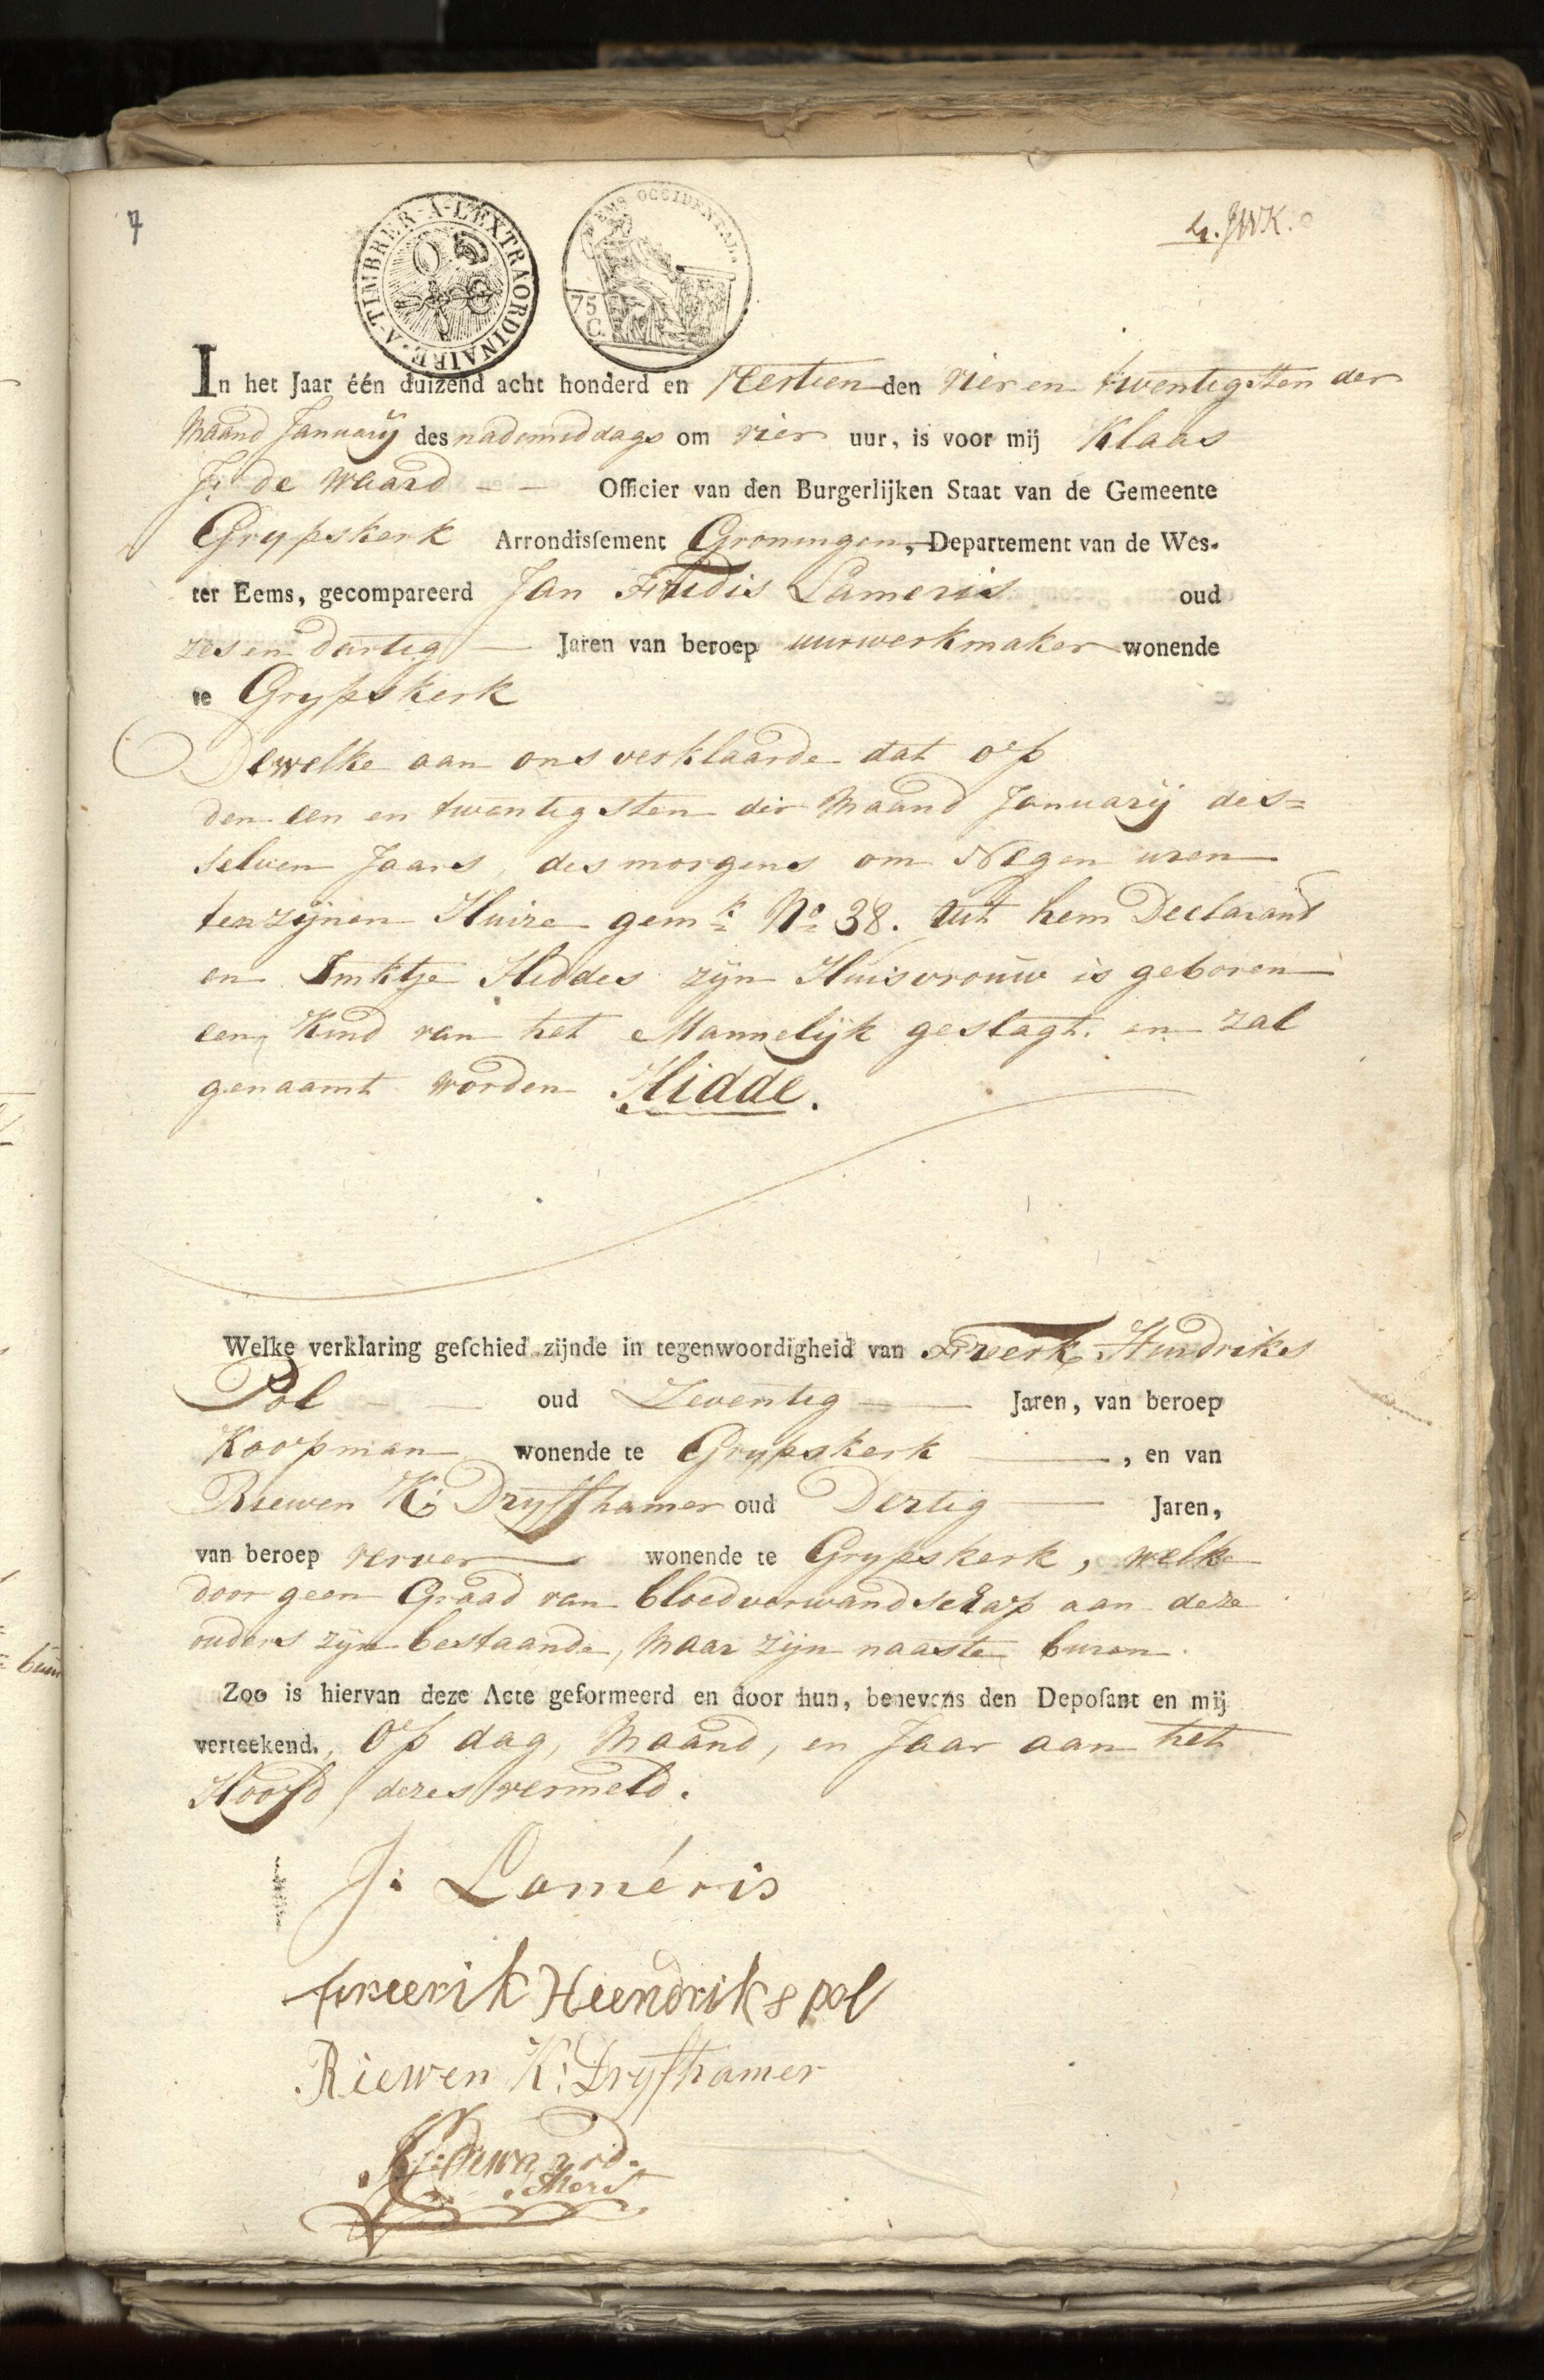 7
A·TIMBRER·A·L'EXTRAORDINAIRE·
EMS OCCIDENTAL.
75 C.
4. JWK.
In het Jaar één duizend acht honderd en Veertien den vier en twentigsten der
Maand January des nadmiddags om vier uur, is voor mij Klaas
J: de Waard Officier van den Burgerlijken Staat van de Gemeente
Grypskerk Arrondissement Groningen, Departement van de Wes-
ter Eems, gecompareerd Jan Lameris oud
zes en dartig Jaren van beroep uurwerkmaker wonende
te Grypskerk
Dewelke aan ons verklaarde dat op
den een en twentigsten der Maand January des=
selven Jaars, des morgens om Negen uren
ten zijnen Huize gemk No 38. uit hem Declarant
en Imktje Hiddes zyn Huisvrouw is geboren
een Kind van het Mannelijk geslagt. en zal
genaamt worden Hidde.
Welke verklaring geschied zijnde in tegenwoordigheid van Freerk Hindriks
Pol oud Zeventig Jaren, van beroep
Koopman wonende te Grypskerk, en van
Riewen K: Dryfhamer oud Dertig Jaren,
van beroep verver wonende te Grypskerk, welke
door geen Graad van bloedverwandschap aan deze
ouders zijn bestaande, Maar zijn naaste buren.
Zoo is hiervan deze Acte geformeerd en door hun, benevens den Deposant en mij
verteekend, Op dag, Maand, en Jaar aan het
Hoofd dezes vermeld.
J: Laméris
freerik Heendriks pol
Riewen K: Dryfhamer
K: J: de waard.